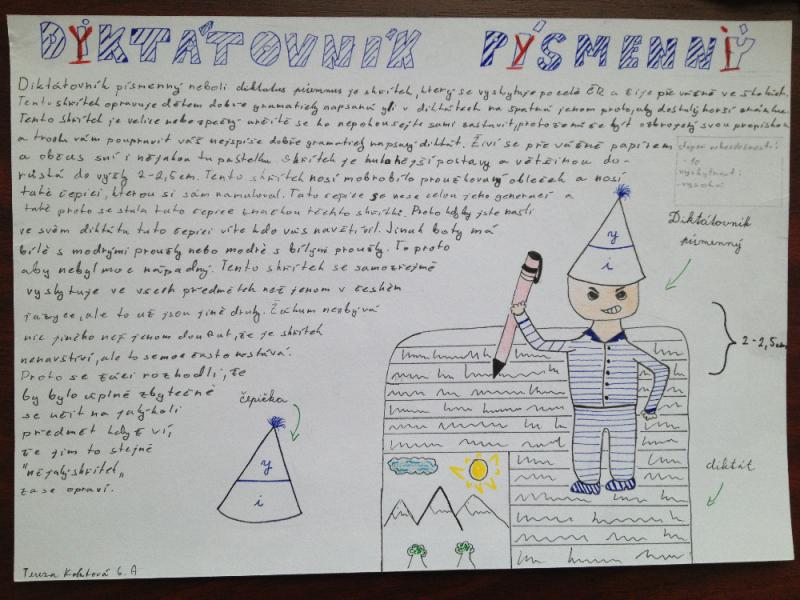 DYKTÁTOVNÍK PÝSMENNIÝ
Diktátovník písmenný neboli diktatus pismenus je skřítek, který se vyskytuje po celé ČR a žije převážně ve školách.
Tento skřítek opravuje dětem dobře gramaticky napsaná y/i v diktátech na špatná jenom proto, aby dostaly horší známku.
Tento skřítek je velice nebezpečný určitě se ho nepokoušejte sami zastavit, protože může být ozbrojený svou propiskou
a trochu vám poupravit váš nejspíše dobře gramaticky napsaný diktát. Živí se převážně papírem
a občas sní i nějakou tu pastelku. Skřítek je hubenější postavy a většinou do-
růstá do výšky 2-2,5cm. Tento skřítek nosí modrobílo proužkovaný obleček a nosí
také čepici, kterou si sám namaloval. Tato čepice se nese celou jeho generací a
také proto se stala tato čepice značkou těchto skřítků. Proto kdyby jste našli
ve svém diktátu tuto čepici víte kdo vás navštívil. Jinak boty má
bílé s modrými proužky nebo modré s bílými proužky. To proto
aby nebyl moc nápadný. Tento skřítek se samozřejmě
vyskytuje ve všech předmětech než jenom v českém
jazyce, ale to už jsou jiné druhy. Žákum nezbývá
nic jiného než jenom doufat, že je skřítek
nenavštíví, ale to se moc často nestává.
Proto se žáci rozhodli, že
by bylo úplně zbytečné
se učit na jakýkoli
předmět když ví,
že jim to stejně
"nějaký skřítek„
zase opraví.
stupeň nebezpečnosti:
- 10
vyskytnost:
- vysoká
Diktátovník
písmenný
y
i
2-2,5cm
čepička
y
i
diktát
6. A